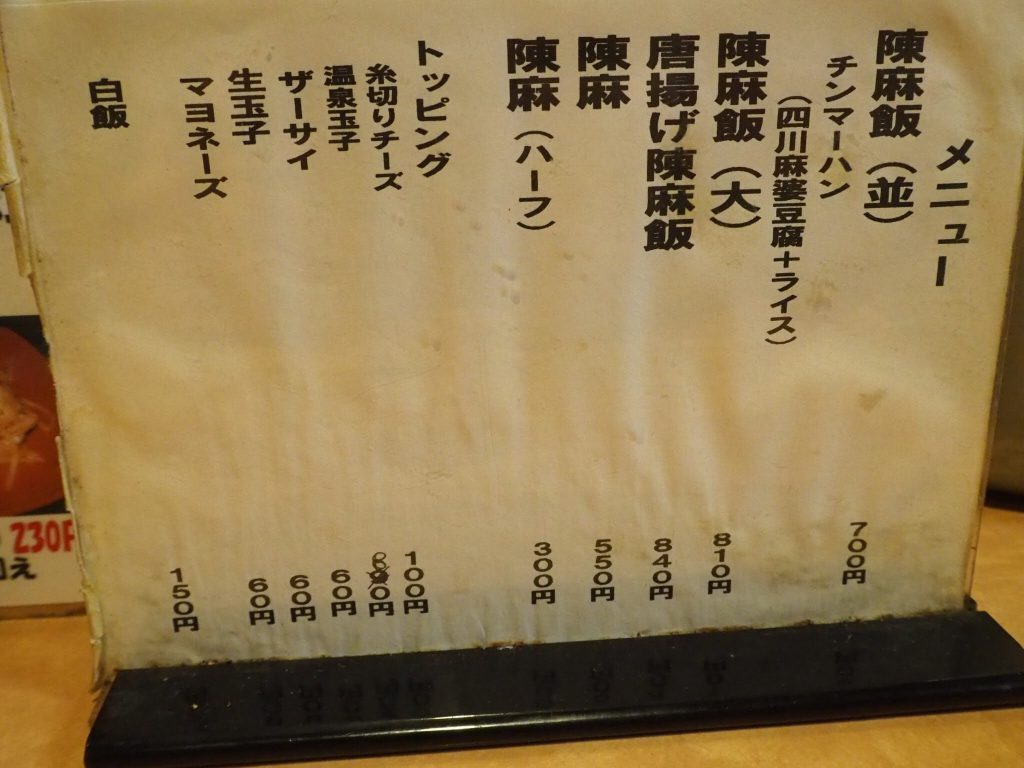 メニュー
陳麻飯(並) 700円
チンマーハン
(四川麻婆豆腐+ライス)
陳麻飯(大) 810円
唐揚げ陳麻飯 840円
陳麻 550円
陳麻(ハーフ) 300円
トッピング
糸切りチーズ 100円
温泉玉子 60円
ザーサイ 60円
生玉子 60円
マヨネーズ 60円
白飯 150円
230
え